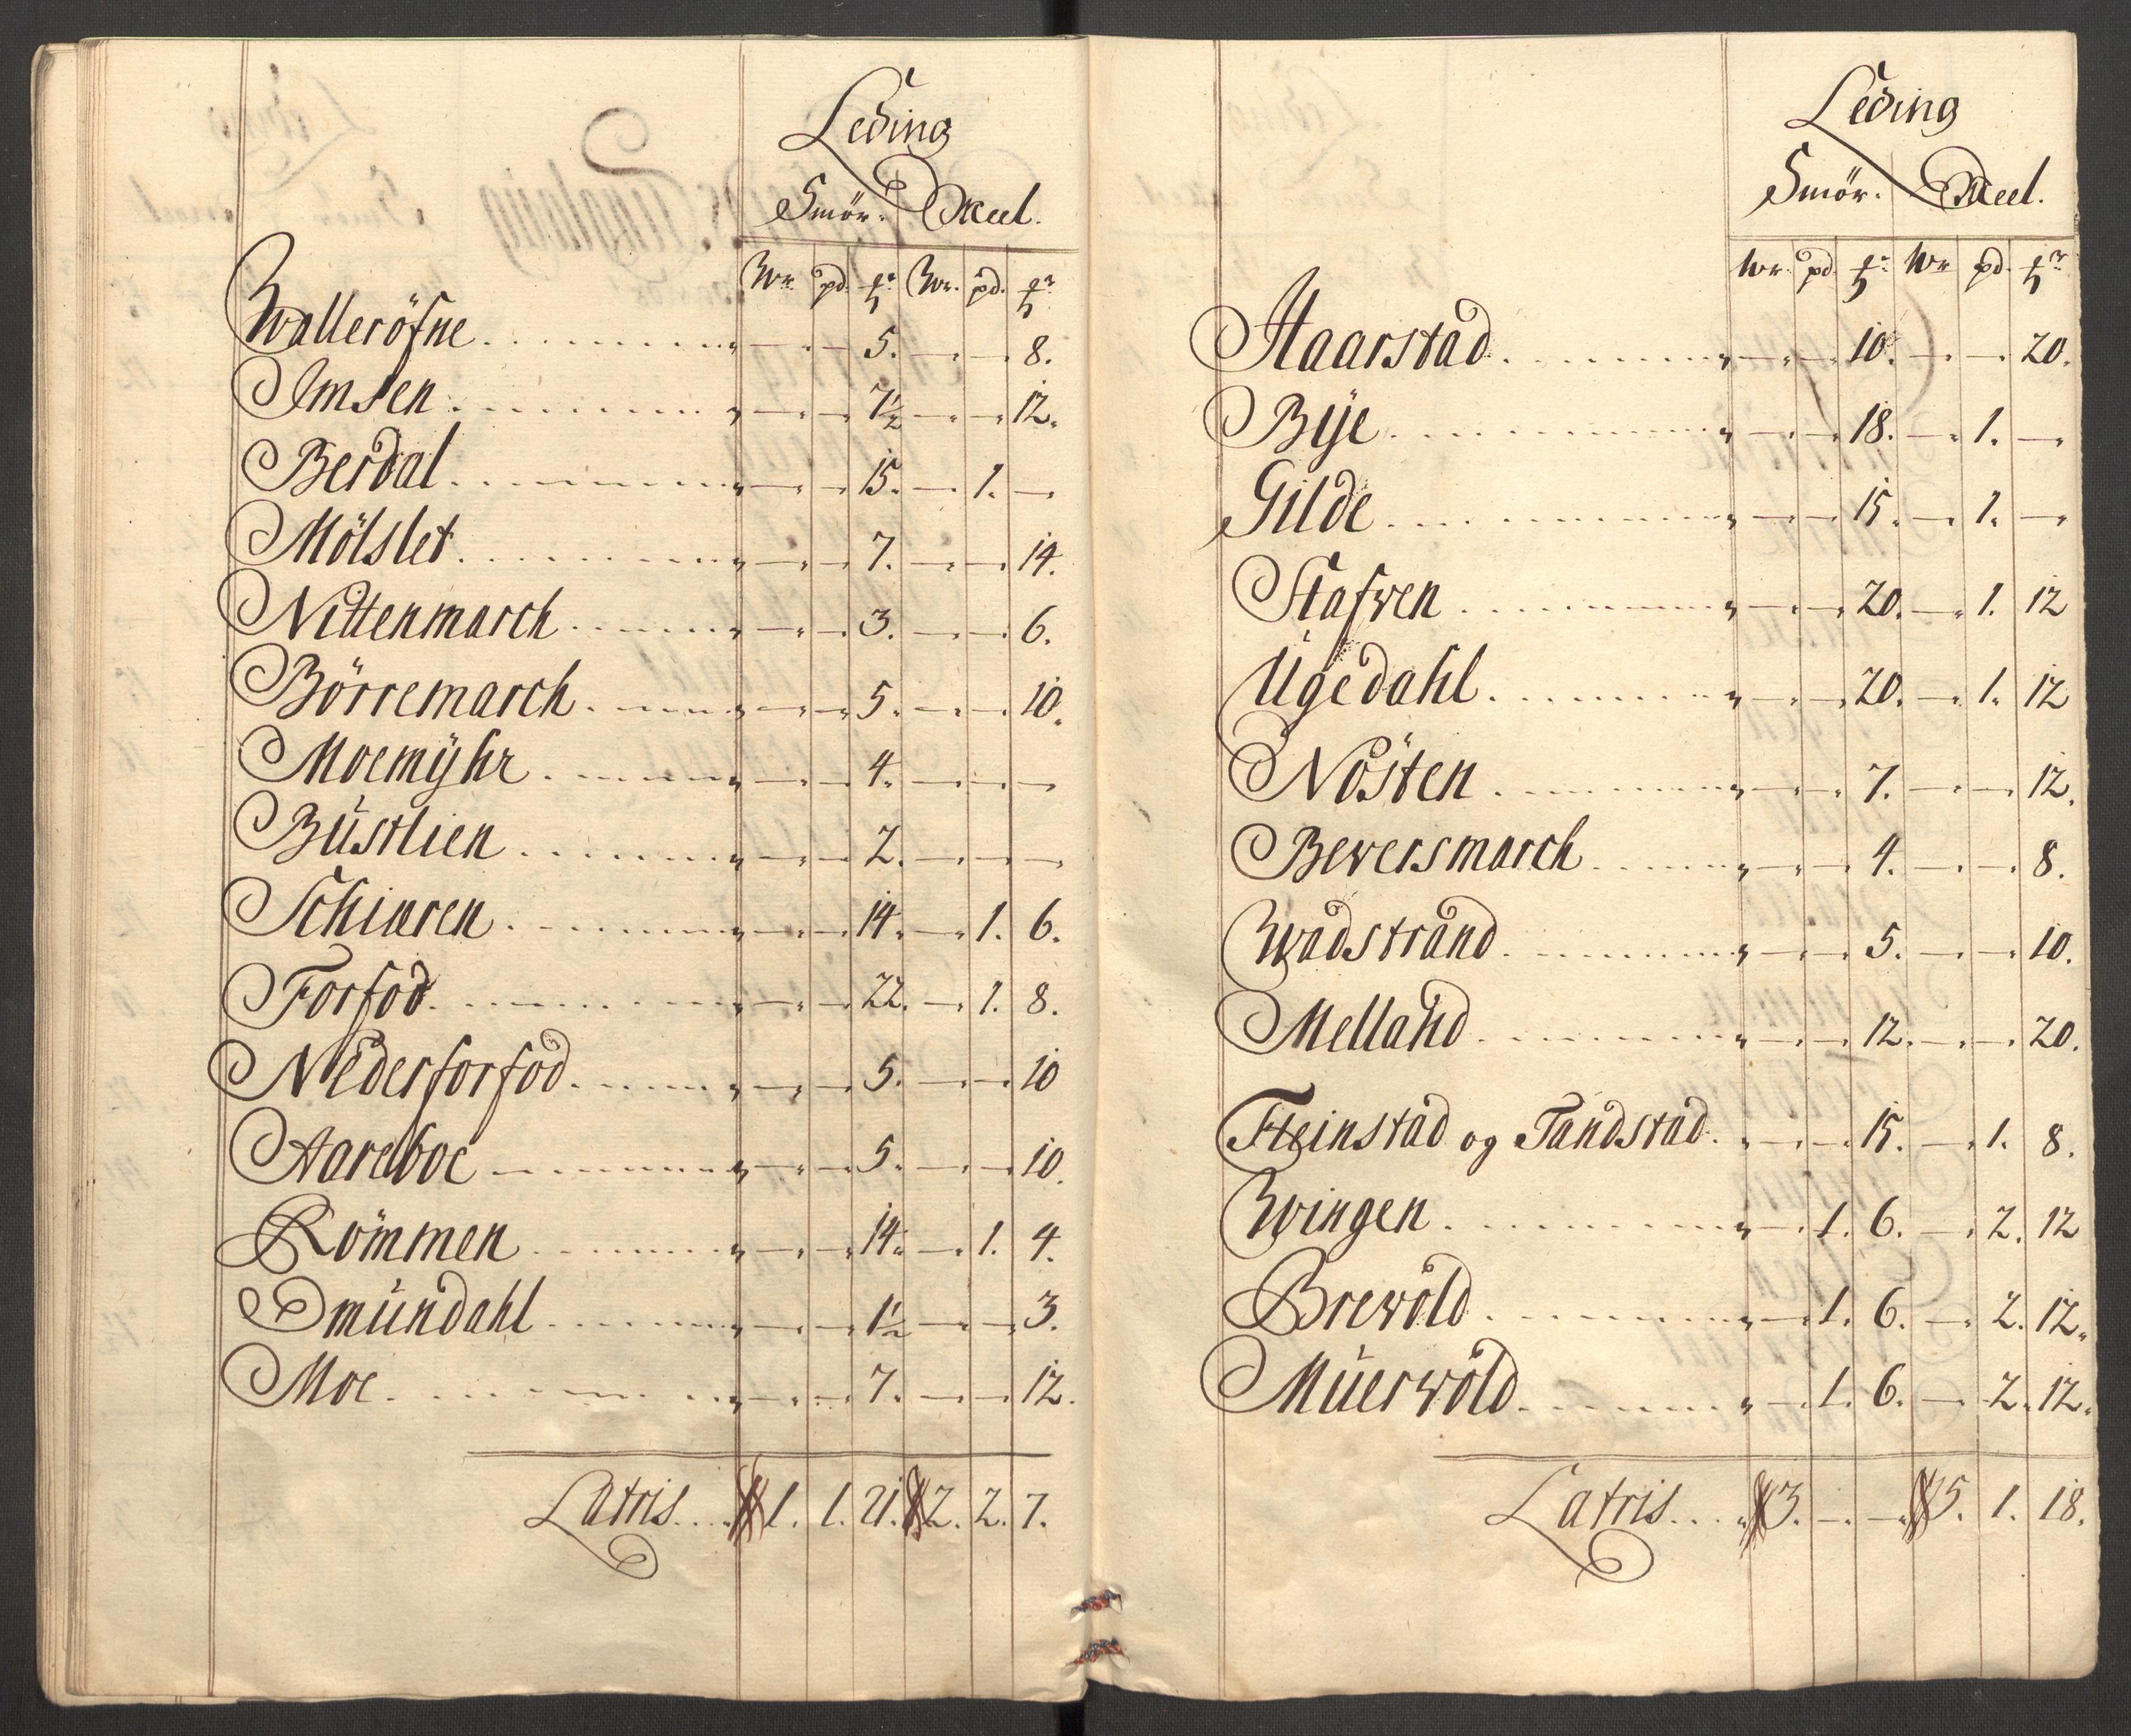 Leding
Smör. Meel.
Wr. pd. ℔r Wr. pd. ℔r
Walleröfne. . . . . . . . . „ — . — 5. — . — 8.
Imsen . . . . . . . . . „ — . — 7½ — . — 12.
Berdal . . . . . . . . . „ — . — 15. — . 1. —
Mölslet . . . . . . . . . „ — . — 7. — . — 14.
Nittenmarch . . . . . . „ — . — 3. — . — 6.
Börremarch . . . . . . „ — . — 5. — . — 10.
Moemÿhr . . . . . . „ — . — 4. — . — . —
Büstlien . . . . . . . „ — . — 2. — . — . —
Schiæren . . . . . . . „ — . — 14. — . 1. 6.
Forfod . . . . . . . „ — . — 22. — . 1. 8.
Nederforfod . . . . . „ — . — 5. — . — 10
Aareboe . . . . . . . „ — . — 5. — . — 10.
Römmen . . . . . . . „ — . — 14. — . 1. 4.
Omündahl . . . . . . „ — . — 1½ — . — 3.
Moe . . . . . . . . „ — . — 7. — . — 12.
Latris . . . 1. 1. 21. 2. 2. 7.
Leding
Smör. Meel.
Wr. pd. ℔r Wr pd. ℔r
Haarstad . . . . . . . . „ — . — 10. — . — 20.
Bÿe . . . . . . . . „ — . — 18. — . 1. —
Gilde . . . . . . . . „ — . — 15. — . 1. —
Stafven . . . . . . . „ — . — 20. — . 1. 12
Ugedahl . . . . . . . „ — . — 20. — . 1. 12
Nösten . . . . . . . „ — . — 7. — . — 12.
Beversmarch . . . . . „ — . — 4. — . — 8.
Wadstrand . . . . . . „ — . — 5. — . — 10.
Melland . . . . . . . „ — . — 12. — . — 20.
Fteinstad og Tandstad . „ — . — 15. — . 1. 8.
Wingen . . . . . . . „ — . 1. 6. — . 2. 12
Brevold . . . . . . . „ — . 1. 6. — . 2. 12.
Müervold . . . . . . „ — . 1. 6. — . 2. 12.
Latris . . . „ 3. — . — . 5. 1. 18.